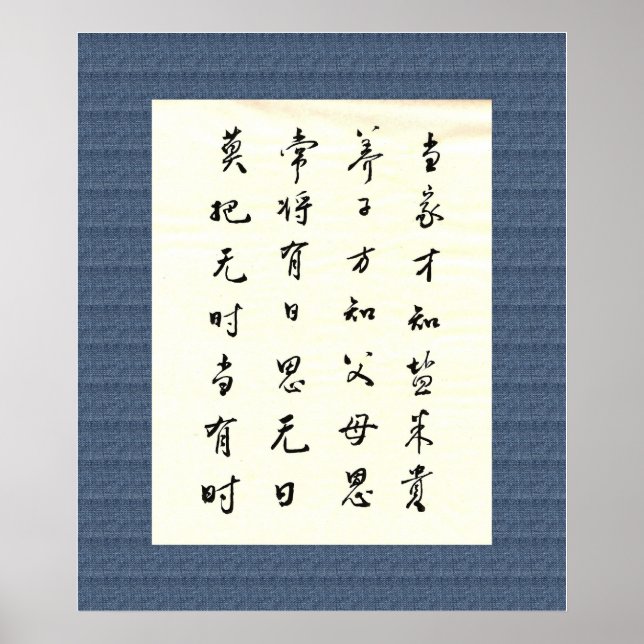 当家才知盐米貴
养子方知父母恩
常将有日思无日
莫把无时当有时